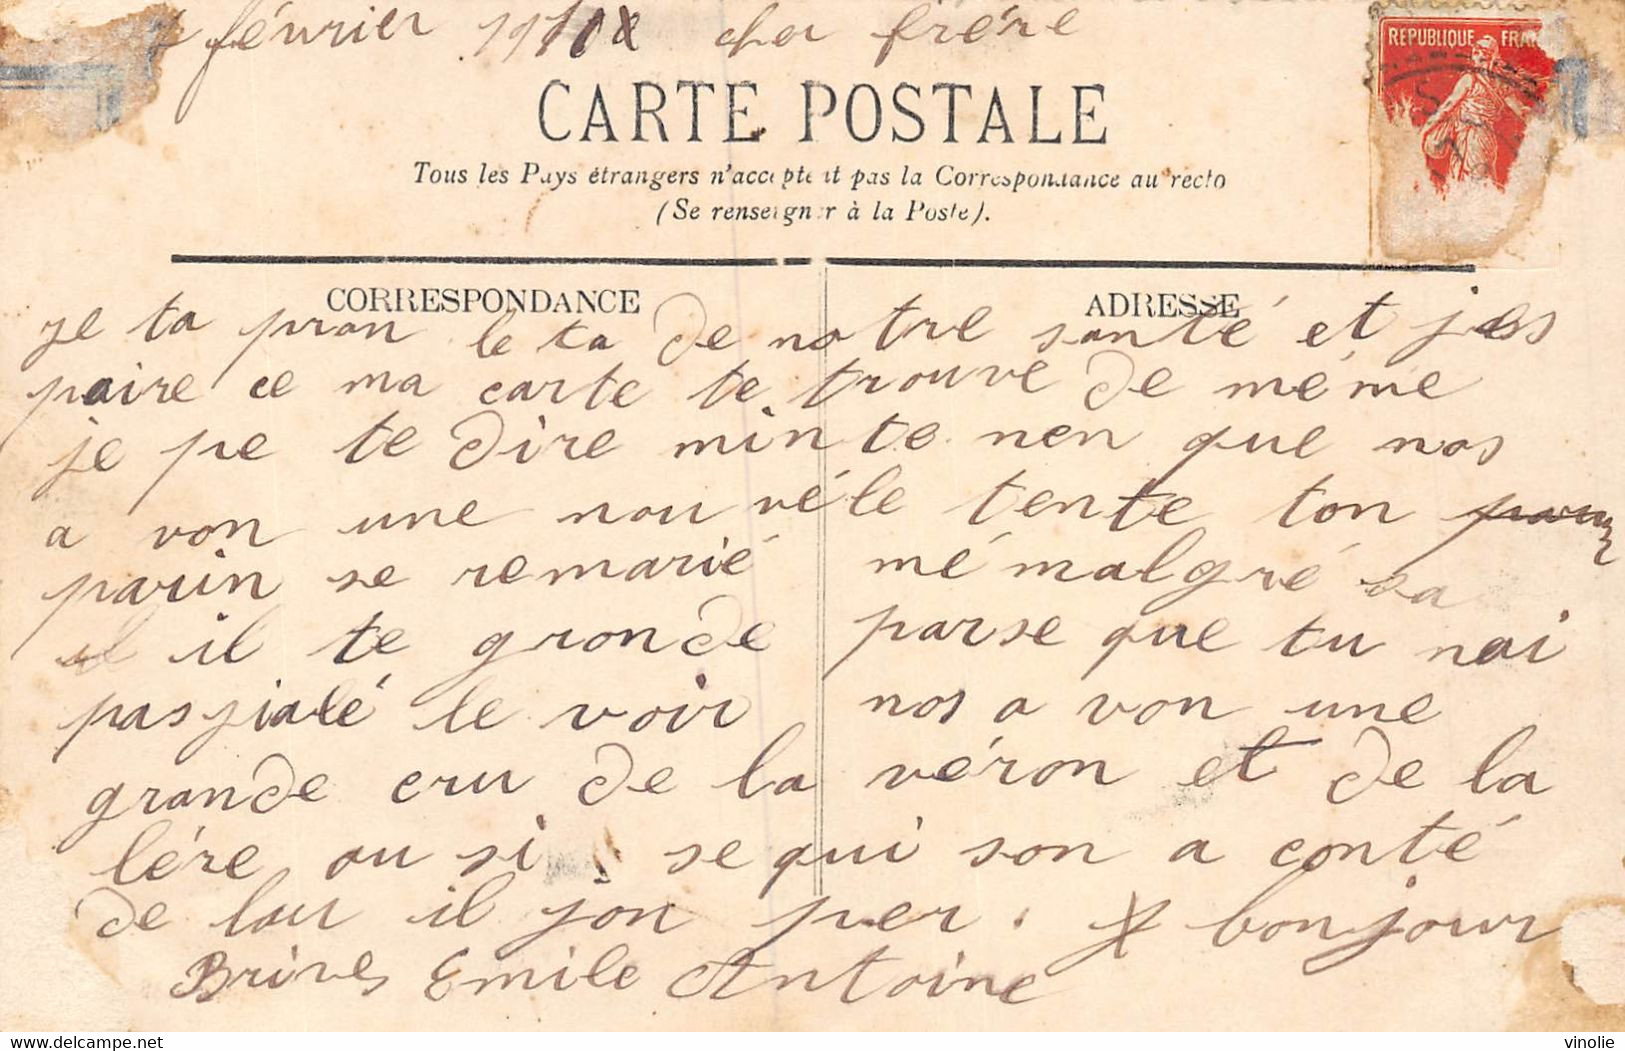 février cher frère
REPUBLIQUE FRAN
CARTE POSTALE
Tous les Pays étrangers n'acceptent pas la Correspondance au recto
(Se renseigner à la Poste).
CORRESPONDANCE ADRESSE
je ta pran le ta de notre santé et jes
paire ce ma carte te trouve de même
je pe te dire minte nen que nos
a von une nou véle tente ton
parin se remarié mé malgré sa
il te gronde parse que tu nai
pas jialé le voir nos a von une
grande cru de la véron et de la
lére ou si se qui son a conté
de lau il jon per. bonjour
Brives Emile Antoine
vinolie